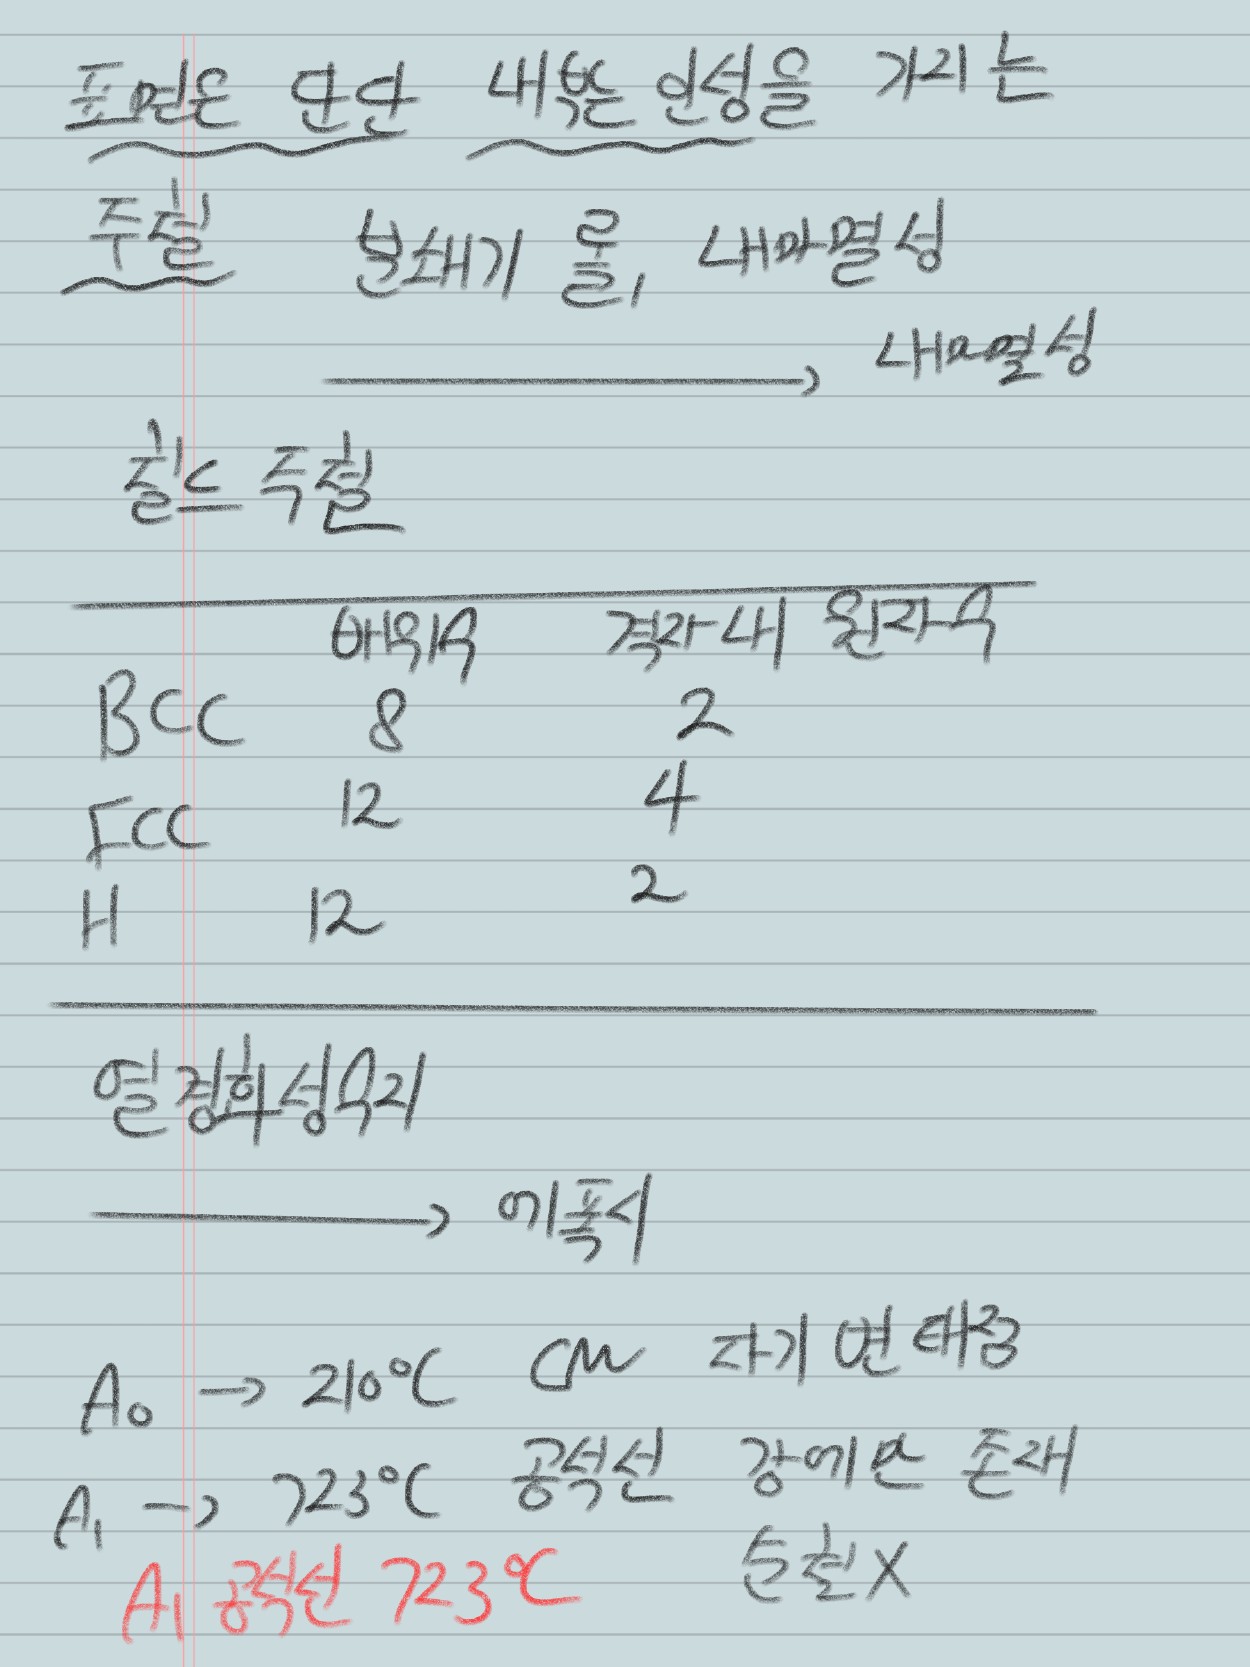 표면은 단단 내부는 인성을 가지는
주철 분쇄기 롤, 내마멸성
내마멸성
칠드 주철
배위수 격자내 원자수
BCC 8 2
FCC 12 4
H 12 2
열경화성수지
에폭시
A0 → 210°C Cm 자기 변태점
A1 → 723°C 공석선 강에만 존재
순철X
A1 공석선 723°C